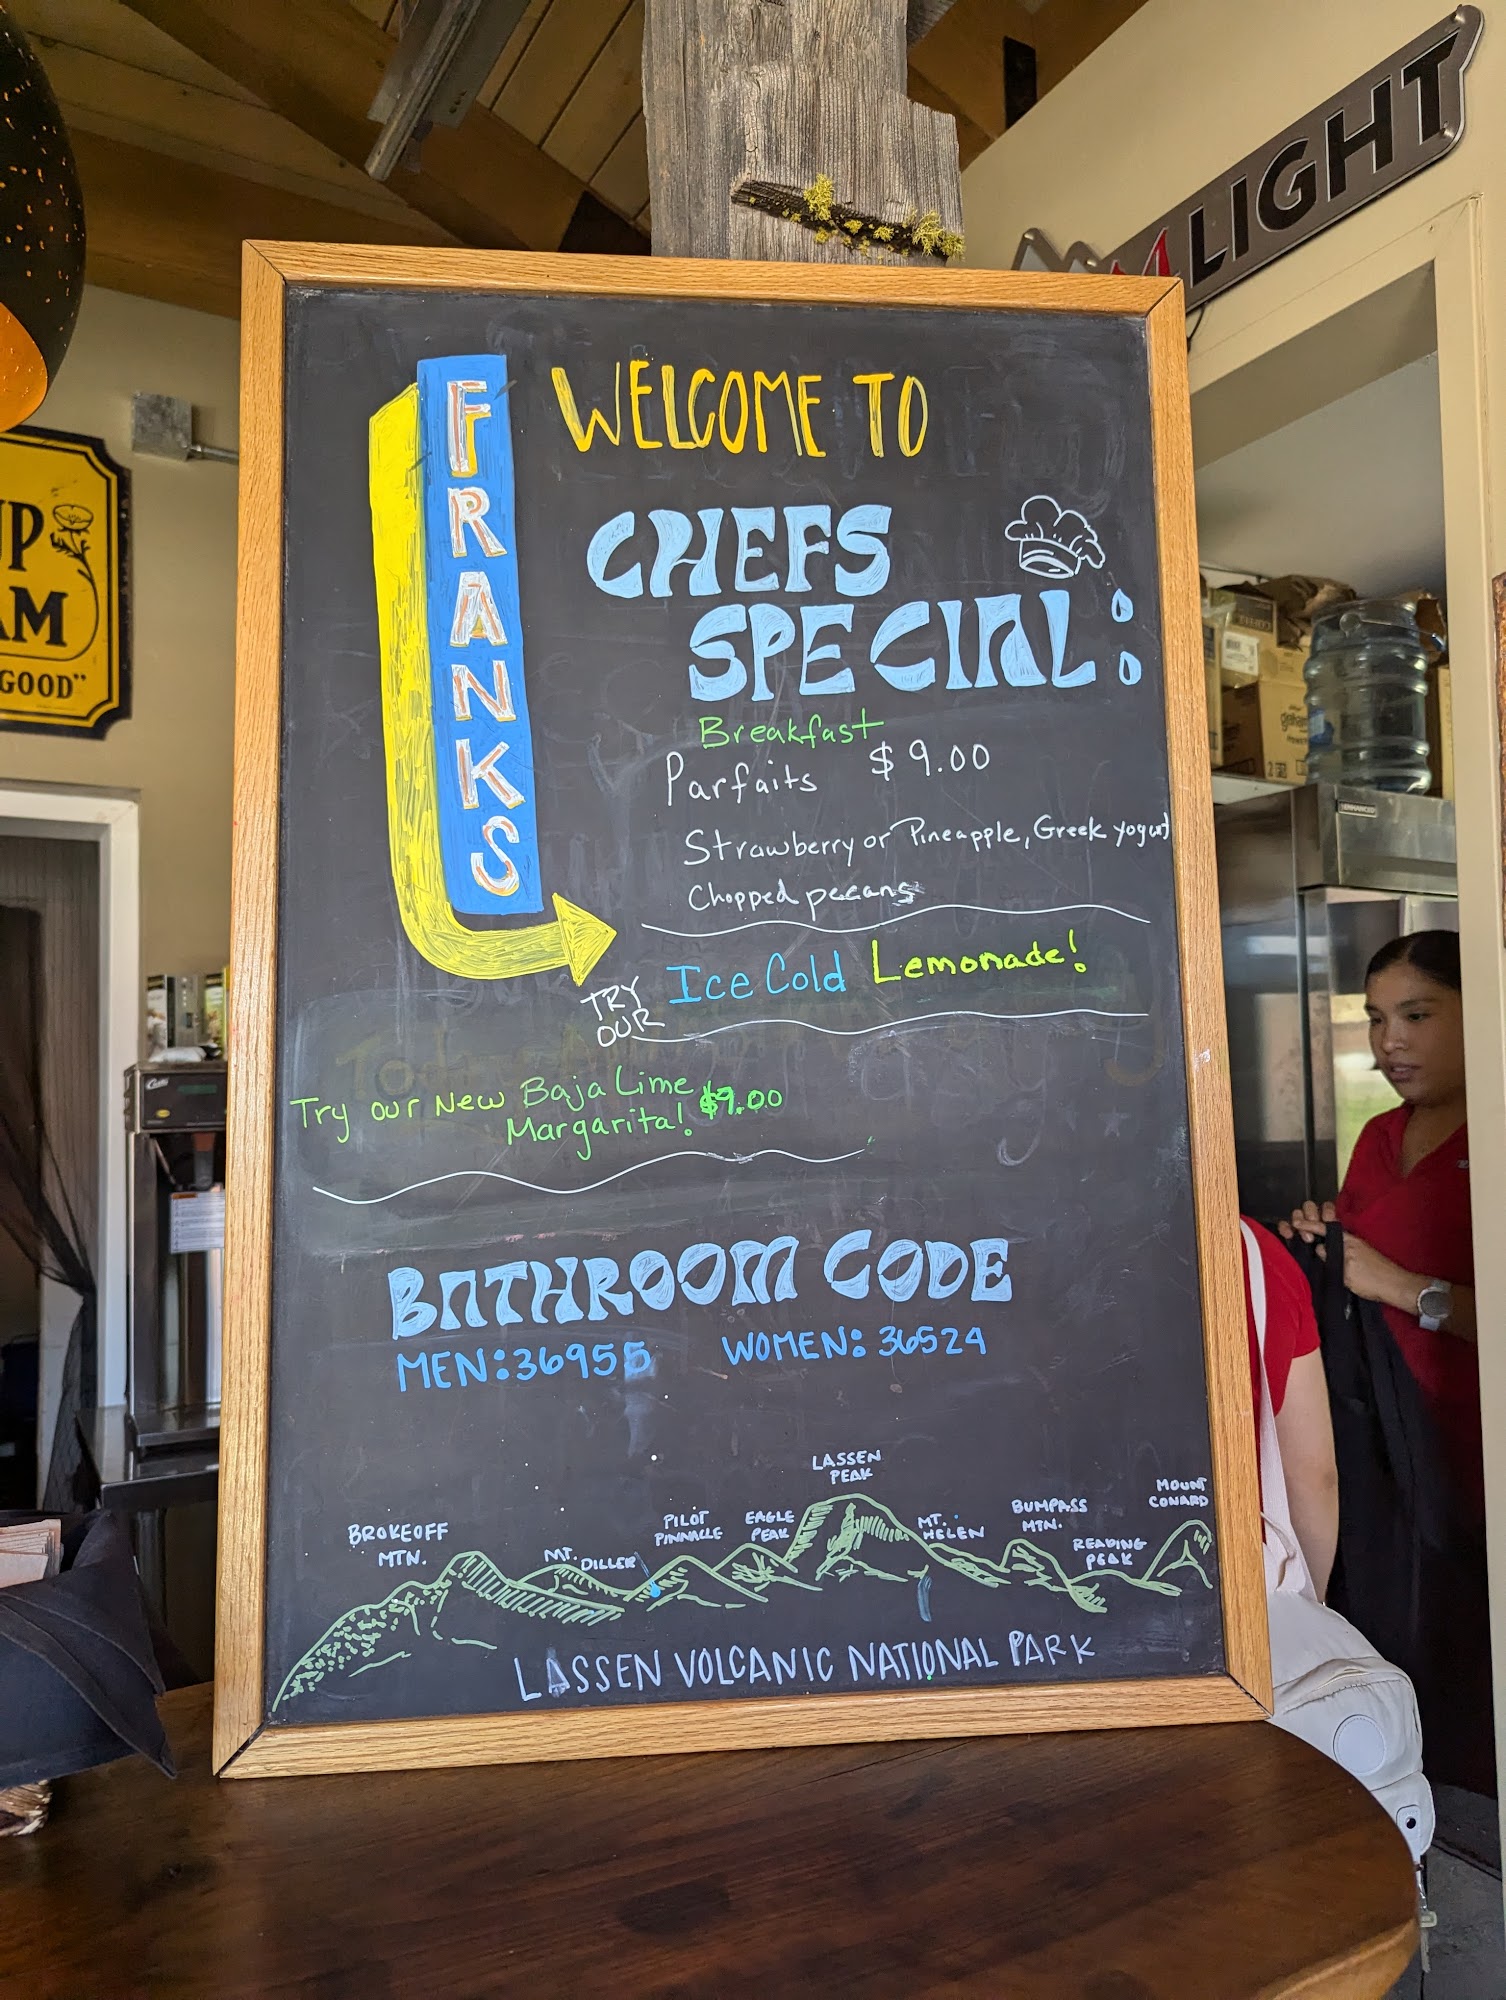 FRANKS
WELCOME TO
CHEFS
SPECIAL:
Breakfast
Parfaits $9.00
Strawberry or Pineapple, Greek yogurt
Chopped pecans
TRY
OUR
Ice Cold Lemonade!
Try our New Baja Lime
Margarita! $9.00
BATHROOM CODE
MEN:36955 WOMEN: 36524
LASSEN
PEAK
BROKEOFF
MTN.
MT. DILLER
PILOT
PINNACLE
EAGLE
PEAK
MT.
HELEN
BUMPASS
MTN.
READING
PEAK
MOUNT
CONARD
LASSEN VOLCANIC NATIONAL PARK
LIGHT
UP
AM
GOOD"